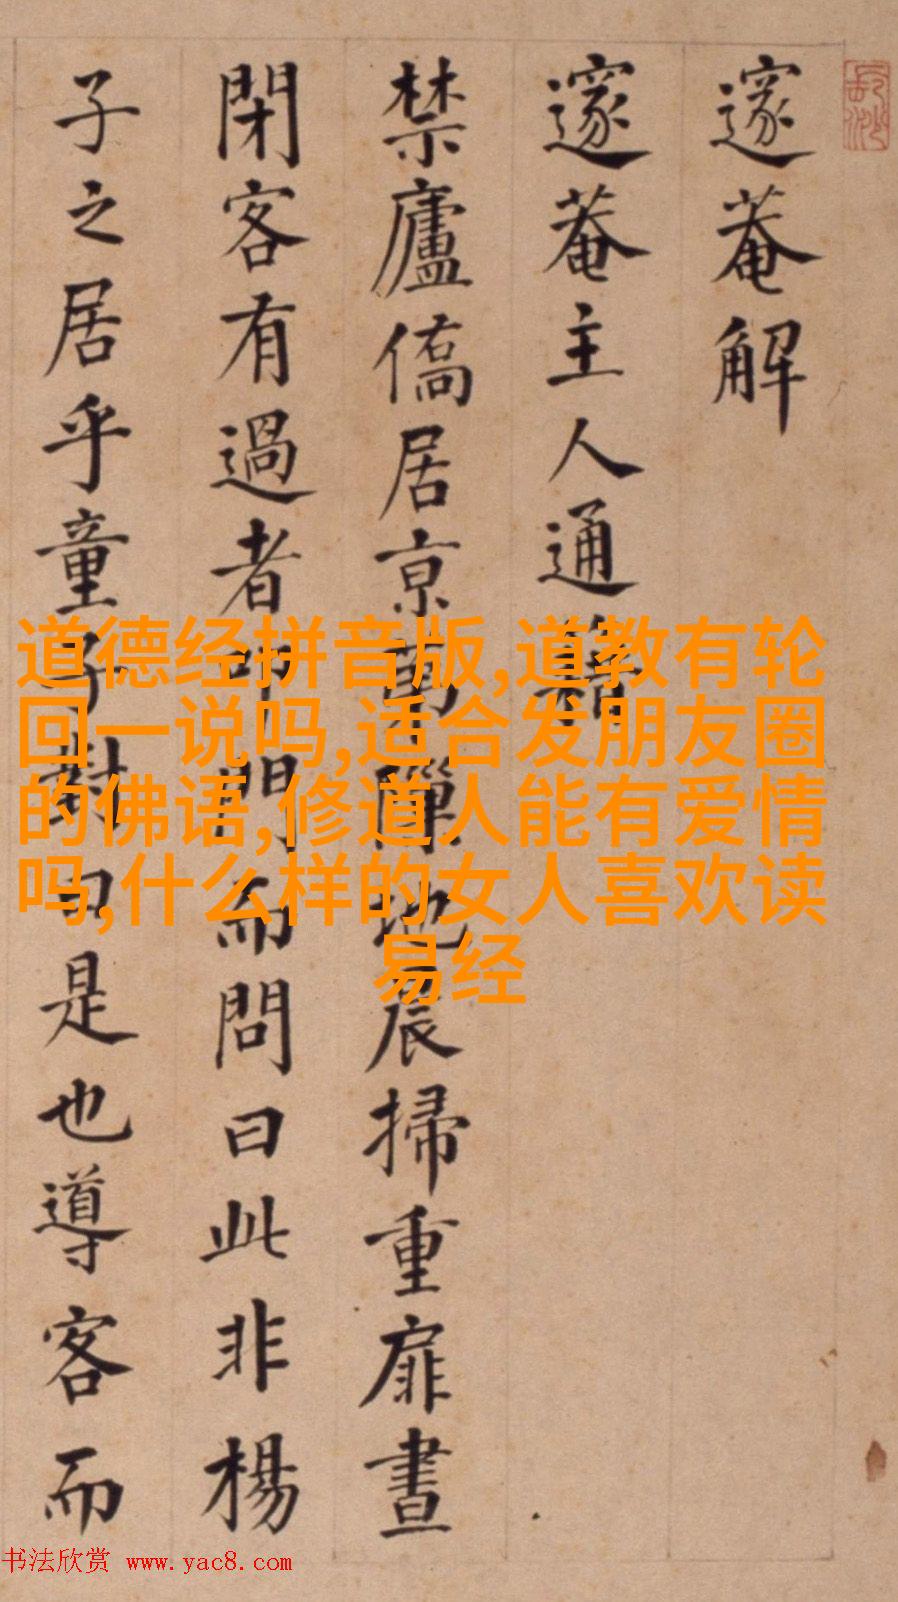 邃菴解
邃菴主人通籍
禁廬僑居京地晨掃重扉晝
閉客有過者叩門而問曰此非楊
子之居乎童子對曰是也導客而
道德经拼音版,道教有轮
回一说吗,适合发朋友圈
的佛语,修道人能有爱情
吗,什么样的女人喜欢读
易经
书法欣赏 www.yac8.com